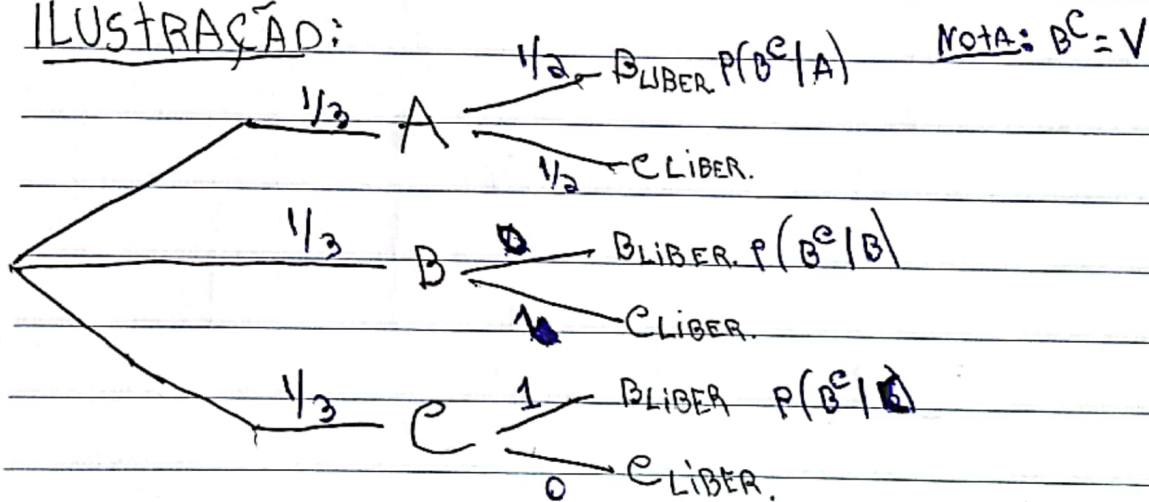 ILUStRAÇÃO:
NotA: B^C = V
1/3 A 1/2 BLIBER. P(B^C/A)
1/2 CLIBER.
1/3 B 0 BLIBER. P(B^C/B)
1 CLIBER.
1/3 C 1 BLIBER P(B^C/C)
0 CLIBER.